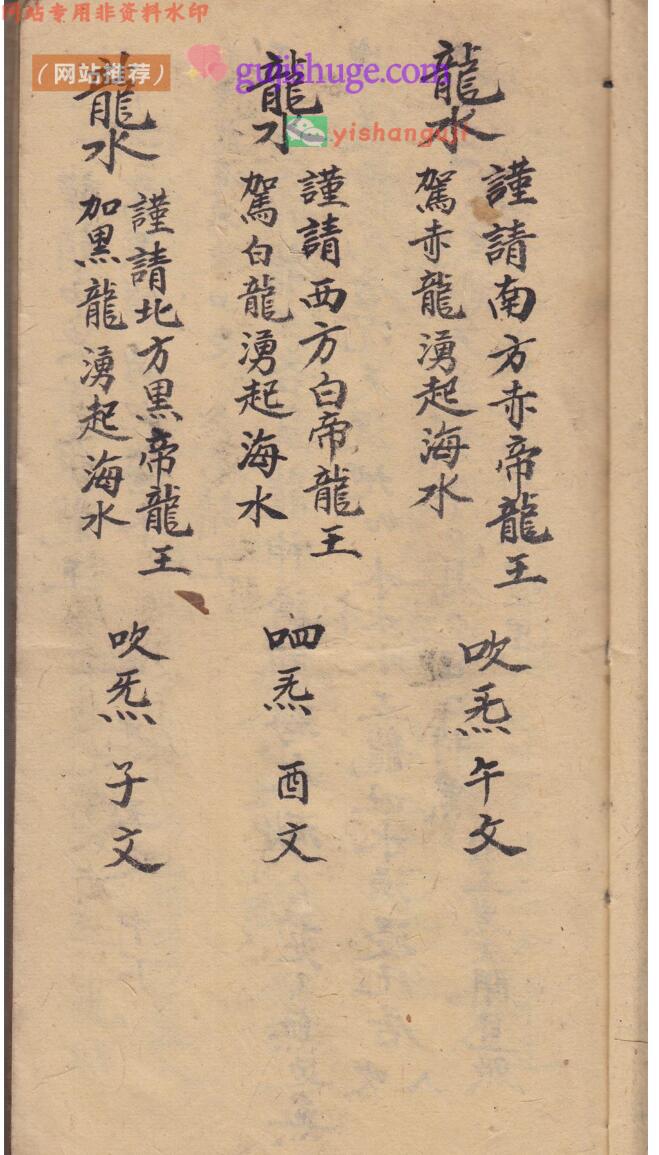 网站专用非资料水印
（网站推荐）
gujishuge.com
yishanguji
龍水
謹請南方赤帝龍王
駕赤龍湧起海水
吹炁 午文
龍水
謹請西方白帝龍王
駕白龍湧起海水
呬炁 酉文
龍水
謹請北方黑帝龍王
加黑龍湧起海水
吹炁 子文